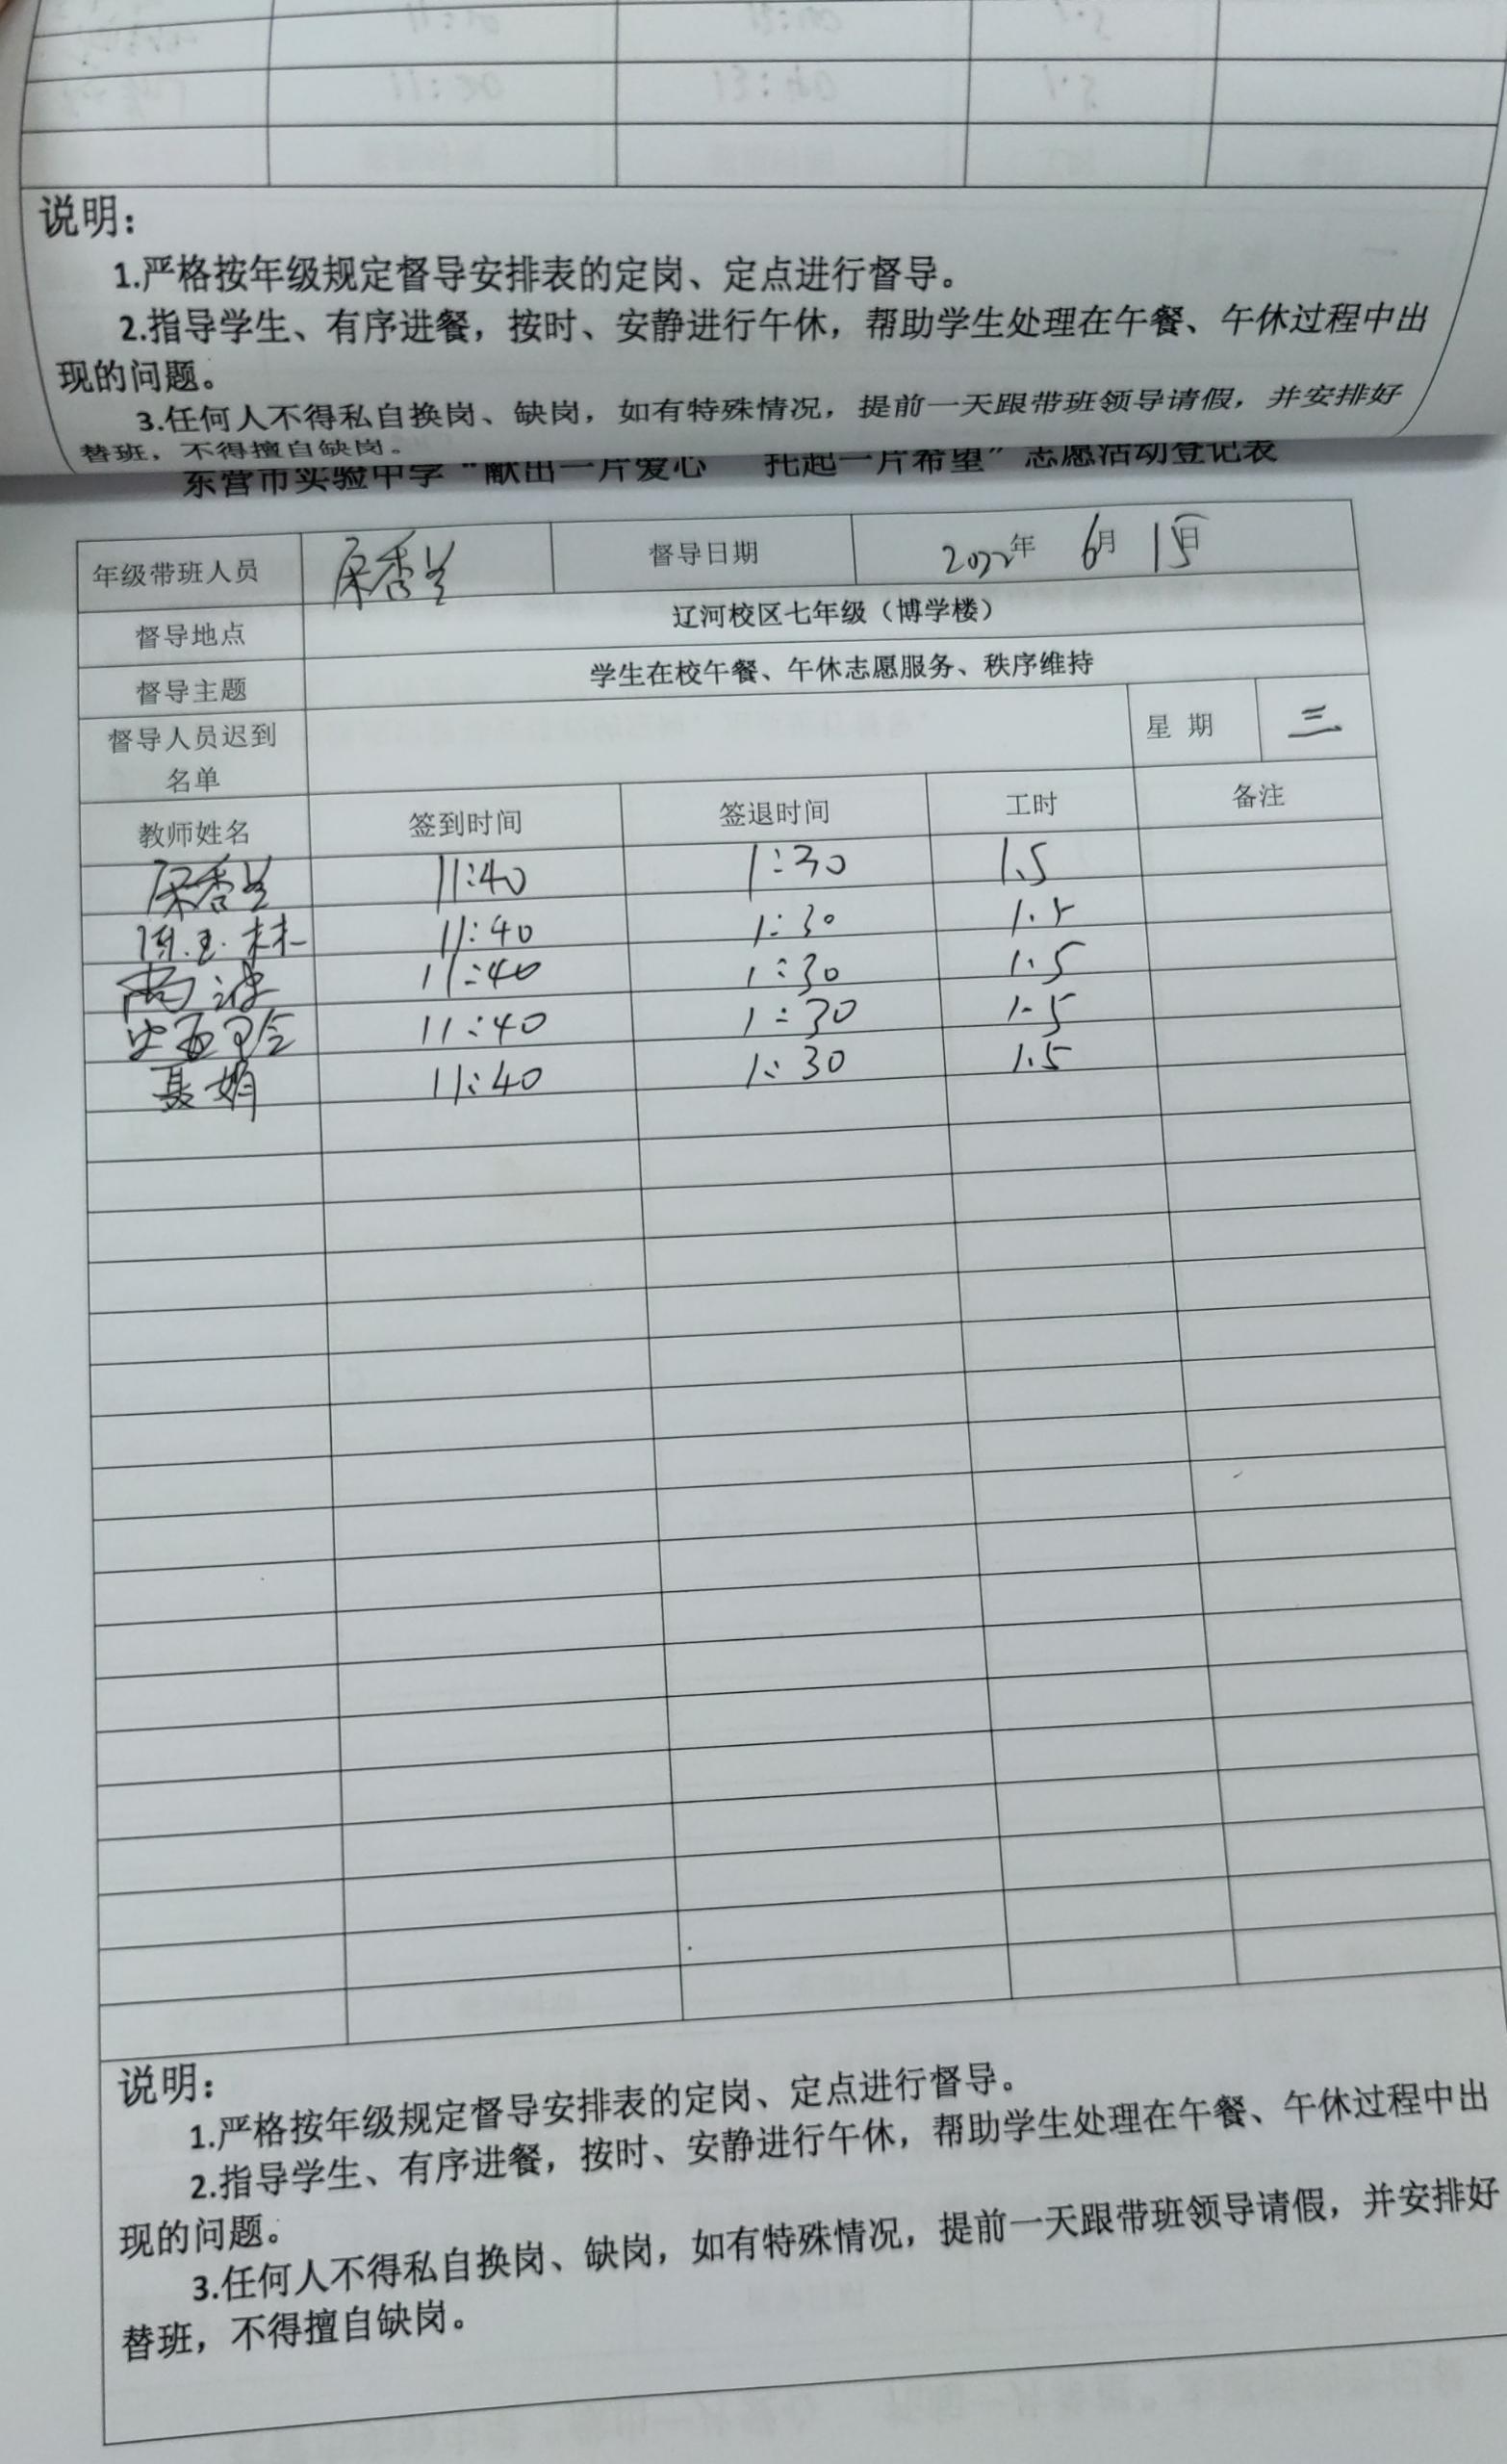 说明：
1.严格按年级规定督导安排表的定岗、定点进行督导。
2.指导学生、有序进餐，按时、安静进行午休，帮助学生处理在午餐、午休过程中出
现的问题。
3.任何人不得私自换岗、缺岗，如有特殊情况，提前一天跟带班领导请假，并安排好
替班，不得擅自缺岗。
东营市实验中学“献出一片爱心 托起一片希望”志愿活动登记表
年级带班人员 督导日期 2022年 6月 15日
督导地点 辽河校区七年级（博学楼）
督导主题 学生在校午餐、午休志愿服务、秩序维持
督导人员迟到 星 期 三
名单
教师姓名 签到时间 签退时间 工时 备注
11:40 1:30 1.5
陈玉林 11:40 1:30 1.5
尚波 11:40 1:30 1.5
11:40 1:30 1.5
聂娟 11:40 1:30 1.5
说明：
1.严格按年级规定督导安排表的定岗、定点进行督导。
2.指导学生、有序进餐，按时、安静进行午休，帮助学生处理在午餐、午休过程中出
现的问题。
3.任何人不得私自换岗、缺岗，如有特殊情况，提前一天跟带班领导请假，并安排好
替班，不得擅自缺岗。